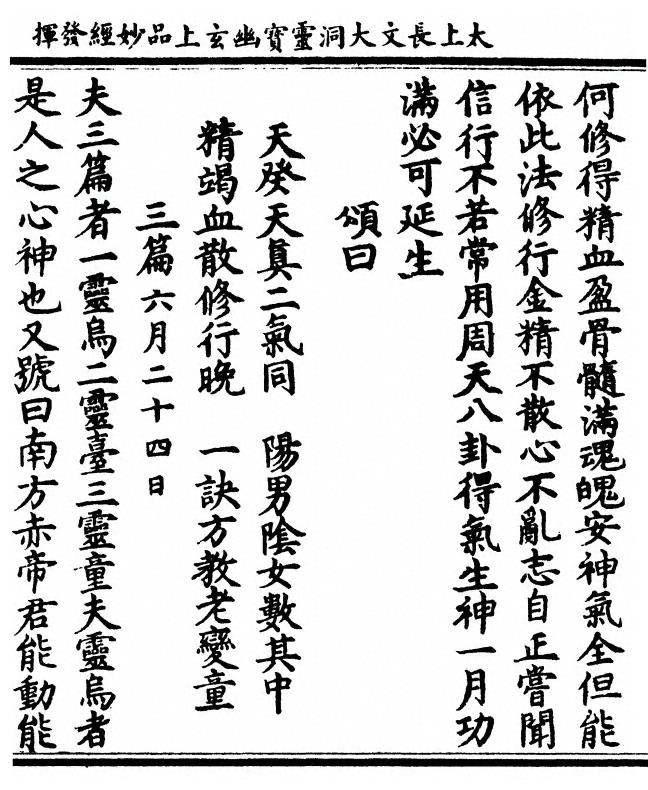 太上長文大洞靈寶幽玄上品妙經發揮
何修得精血盈骨髓滿魂魄安神氣全但能
依此法修行金精不散心不亂志自正嘗聞
信行不若常用周天八卦得氣生神一月功
滿必可延生
頌曰
天癸天真二氣同 陽男陰女數其中
精竭血散修行晚 一訣方教老變童
三篇六月二十四日
夫三篇者一靈烏二靈臺三靈童夫靈烏者
是人之心神也又號曰南方赤帝君能動能